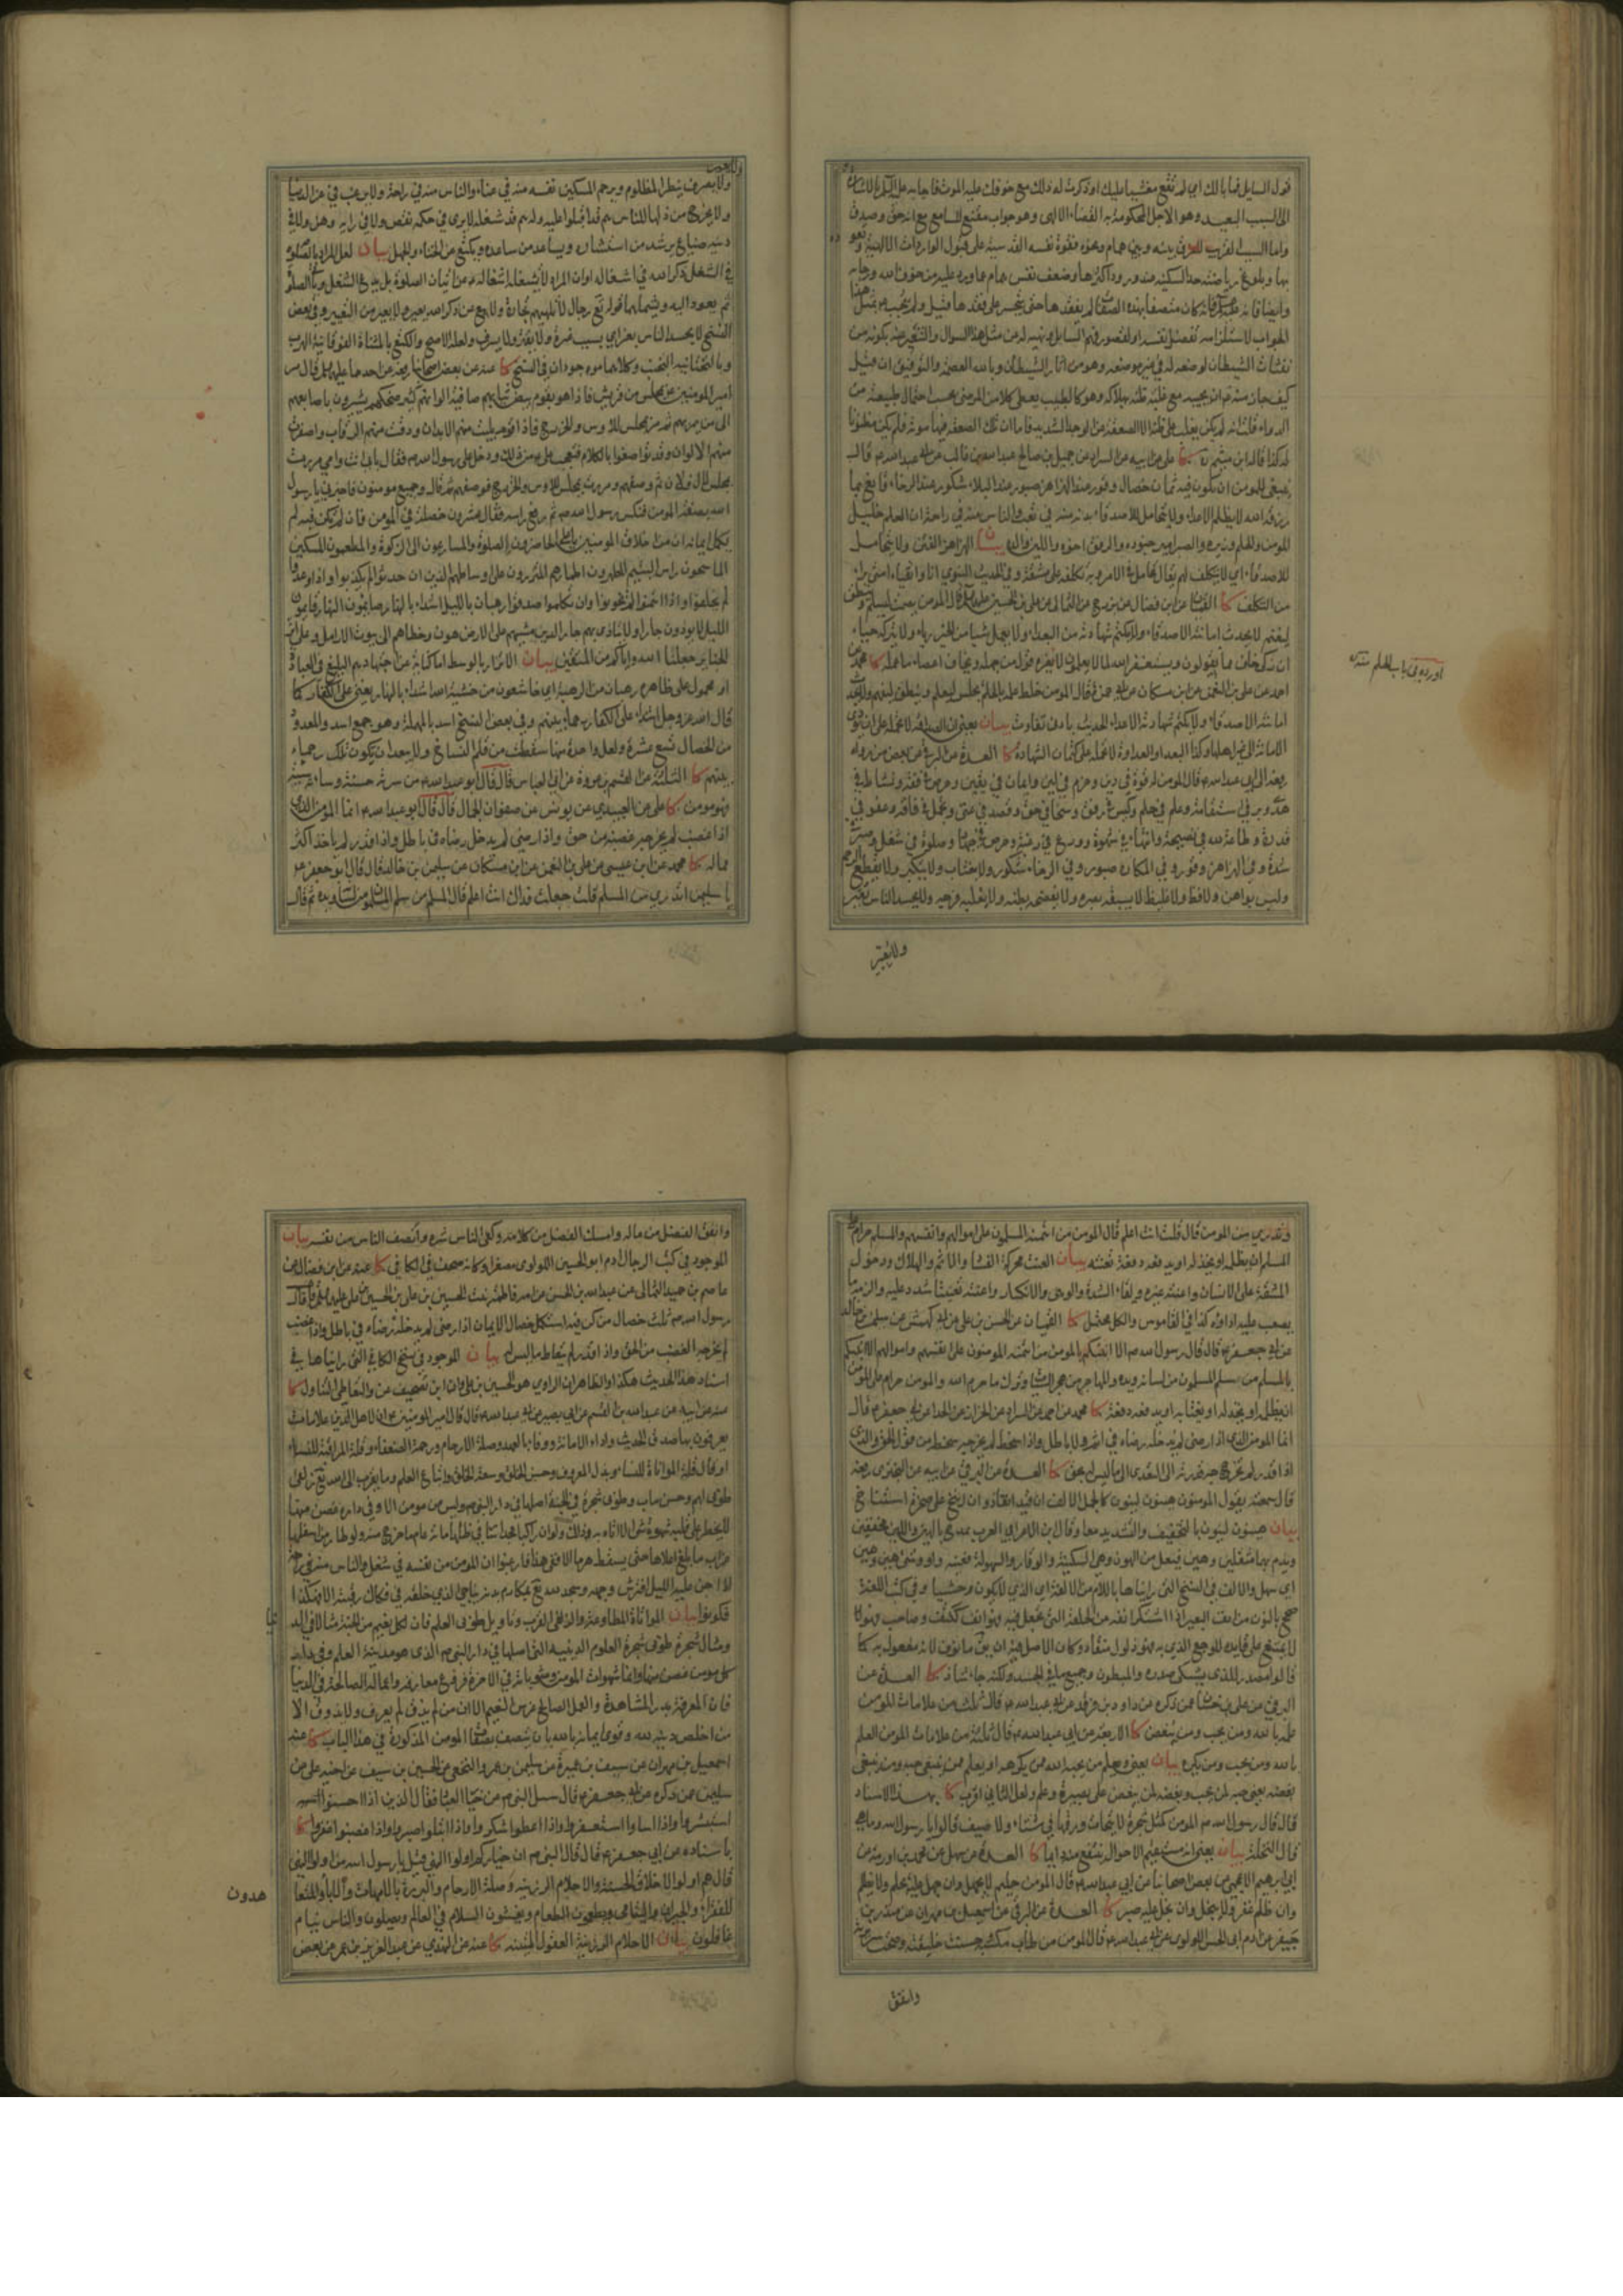 قول السايل فما بالك اي لم تقع مغشيا عليك او ذكرت له ذلك مع خوفك عليه الموت فاجابه عليه السلام بالاشارة
الى السبب البعيد وهو الاجل المحكوم به القضاء الالهى وهو جواب مقنع للسامع مع انه حق وصدق
واما السبب القريب للفرق بينه وبين همام ونحوه فقوة نفسه القدسية على قبول الواردات الالهية وتعوده
بها وبلوغ رياضته حد السكينة عند ورود اكثرها وضعف نفس همام عما ورد عليه من خوف الله ورجائه
وايضا فانه عليه السلام كان متصفا بهذه الصفات لم يفقدها حتى يتحسر على فقدها قيل ولم يجب بمثل هذا
الجواب لاستلزامه تفضيل نفسه او لقصور فهم السايل ونهيه له عن مثل هذا السوال والتنفير عنه بكونه من
نفثات الشيطان لوضعه له في غير موضعه وهو من اثار الشيطان وبالله العصمة والتوفيق ان قيل
كيف جاز منه ان يجيبه مع غلبة ظنه بهلاكه وهو كالطبيب يعطى كلا من المرضى بحسب احتمال طبيعته من
الدواء قلت انه لم يكن يغلب على ظنه الا الصعقة عن الوجد الشديد فاما ان تلك الصعقة فيها موته فلم يكن مظنونا
له كذا قاله ابن ميثم ره كا على عن ابيه عن السراد عن جميل بن صالح عن عبد الله بن غالب عن ابي عبد الله ع قال
ينبغى للمومن ان يكون فيه ثمان خصال وقور عند الهزاهز صبور عند البلاء شكور عند الرخاء قانع بما
رزقه الله لا يظلم الاعداء ولا يتحامل للاصدقاء بدنه منه في تعب والناس منه في راحة ان العلم خليل
المومن والحلم وزيره والصبر امير جنوده والرفق اخوه واللين والده بيان الهزاهز الفتن ولا يتحامل
للاصدقاء اي لا يتكلف لهم يقال تحامل في الامر وبه تكلفه على مشقة وفي الحديث النبوي انا واتقياء امتي براء
من التكلف كا القميان عن ابن فضال عن بزرج عن الثمالى عن على بن الحسين عليه السلام قال المومن يصمت ليسلم وينطق
ليغنم لا يحدث امانته الاصدقاء ولا يكتم شهادته من البعداء ولا يعمل شيا من الخير رياء ولا يتركه حياء
ان زكى خاف مما يقولون ويستغفر الله لما لا يعلمون لا يغره قول من جهله ويخاف احصاء ما عمله كا محمد عن
احمد عن على بن النعمن عن ابن مسكان عن ابي حمزة قال المومن خلط عمله بالحلم يجلس ليعلم وينطق ليفهم ولا يحدث
امانته الاصدقاء ولا يكتم شهادته الاعداء الحديث بادنى تفاوت بيان يعنى ان الصداقة لا تحمله على ان يودي
الامانة الى غير اهلها وكذا البعد او العداوة لا تحمله على كتمان الشهادة كا العدة عن البرقي عن بعض من رواه
رفعه الى ابي عبد الله ع قال المومن له قوة في دين وحزم في لين وايمان في يقين وحرص في فقه ونشاط في
هدى وبر في استقامة وعلم في حلم وكيس في رفق وسخاء في حق وقصد في غنى وتجمل في فاقة وعفو في
قدرة وطاعة لله في نصيحة وانتهاء في شهوة وورع في رغبة وحرص في جهاد وصلوة في شغل وصبر في
شدة وفي الهزاهز وقور وفي المكاره صبور وفي الرخاء شكور ولا يغتاب ولا يتكبر ولا يقطع الرحم
وليس بواهن ولا فظ ولا غليظ لا يسبقه بصره ولا يفضحه بطنه ولا يغلبه فرجه ولا يحسد الناس يعير
ولا يعير
اورده في باب العلم منه
ولا يعير ولا يسرف ينصر المظلوم ويرحم المسكين نفسه منه في عناء والناس منه في راحة ولا يرغب في عز الدنيا
ولا يجزع من ذلها للناس هم قد اقبلوا عليه وله هم قد شغله لا يرى في حكمه نقص ولا في رايه وهن ولا في
دينه ضياع يرشد من استشاره ويساعد من ساعده ويكيع عن الخناء والجهل بيان لعل المراد بالصلوة
في الشغل ذكر الله في اشغاله او ان المراد لا يشغله اشغاله عن اتيان الصلوة بل يدع الشغل وياتي الصلوة
ثم يعود اليه ويشملهما قوله تع رجال لا تلهيهم تجارة ولا بيع عن ذكر الله يعير ولا يعير من التعيير وفي بعض
النسخ لا يحسد الناس بعز اي بسبب عزة ولا يقتر ولا يسرف ولعله الاصح والكنع بالمثناة الفوقانية الهرب
وبالتحتانية الجبن وكلاهما موجودان في النسخ كا عنه عن بعض اصحابنا رفعه عن احدهما عليهما السلام قال مر
امير المومنين ع بمجلس من قريش فاذا هو بقوم بيض ثيابهم صافية الوانهم كثير ضحكهم يشيرون باصابعهم
الى من يمر بهم ثم مر بمجلس للاوس والخزرج فاذا اقوام بليت منهم الابدان ودقت منهم الرقاب واصفرت
منهم الالوان وقد تواضعوا بالكلام فتعجب على ع من ذلك ودخل على رسول الله ص فقال بابي انت وامي مررت
بمجلس لال فلان ثم وصفهم ومررت بمجلس للاوس والخزرج فوصفهم ثم قال وجميع مومنون فاخبرني يا رسول
الله بصفة المومن فنكس رسول الله ص ثم رفع راسه فقال عشرون خصلة في المومن فان لم تكن فيه لم
يكمل ايمانه ان من اخلاق المومنين يا على الحاضرون الصلوة والمسارعون الى الزكوة والمطعمون المسكين
الماسحون راس اليتيم المطهرون اطمارهم المتزرون على اوساطهم الذين ان حدثوا لم يكذبوا واذا وعدوا
لم يخلفوا واذا ائتمنوا لم يخونوا وان تكلموا صدقوا رهبان بالليل اسد بالنهار صايمون النهار قايمون
الليل لا يوذون جارا ولا يتاذى بهم جار الذين مشيهم على الارض هون وخطاهم الى بيوت الارامل وعلى اثر
الجنايز جعلنا الله واياكم من المتقين بيان الاتزار بالوسط اما كناية عن اجتهادهم البليغ في العبادة
او محمول على ظاهره رهبان من الرهبة اي خاشعون من خشية الله اشداء بالنهار يعنى على الكفار كما
قال الله عز وجل اشداء على الكفار رحماء بينهم وفي بعض النسخ اسد بالمهملة وهو جمع اسد والمعدود
من الخصال تسع عشرة ولعل واحدة منها سقطت من قلم النساخ ولا يبعد ان يكون تلك رحماء
بينهم كا الثلثة عن القسم بن عروة عن ابي العباس قال قال ابو عبد الله ع من سرته حسنته وساءته سيئته
فهو مومن كا على عن العبيدي عن يونس عن صفوان الجمال قال قال ابو عبد الله ع انما المومن الذي
اذا غضب لم يخرجه غضبه من حق واذا رضى لم يدخله رضاه في باطل واذا قدر لم ياخذ اكثر
مما له كا محمد عن ابن عيسى عن على بن النعمن عن ابن مسكان عن سليمن بن خالد قال قال ابو جعفر ع
يا سليمن اتدري من المسلم قلت جعلت فداك انت اعلم قال المسلم من سلم المسلمون من لسانه ويده ثم قال
وتدري من المومن قال قلت انت اعلم قال المومن من ائتمنه المسلمون على اموالهم وانفسهم والمسلم حرام على
المسلم ان يظلمه او يخذله او يدفعه دفعة تعنته بيان العنت محركة الفساد والاثم والهلاك ودخول
المشقة على الانسان واعنته غيره ولقاء الشدة والوهى والانكسار واعنته تعنيتا شدد عليه والزمه ما
يصعب عليه اداؤه كذا في القاموس والكل محتمل كا القميان عن الحسن بن على عن ابي كهمش عن سليمن بن خالد
عن ابي جعفر ع قال قال رسول الله ص الا انبئكم بالمومن من ائتمنه المومنون على انفسهم واموالهم الا انبئكم
بالمسلم من سلم المسلمون من لسانه ويده والمهاجر من هجر السيئات وترك ما حرم الله والمومن حرام على المومن
ان يظلمه او يخذله او يغتابه او يدفعه دفعة كا محمد عن احمد عن السراد عن الخراز عن الحذاء عن ابي جعفر ع قال
انما المومن الذي اذا رضى لم يدخله رضاه في اثم ولا باطل واذا سخط لم يخرجه سخطه من قول الحق والذي
اذا قدر لم تخرجه قدرته الى التعدي الى ما ليس له بحق كا العدة عن البرقي عن ابيه عن البختري رفعه
قال سمعته يقول المومنون هينون لينون كالجمل الالف ان قيد انقاد وان انيخ على صخرة استناخ
بيان هينون لينون بالتخفيف والتشديد معا وقال ابن الاعرابي العرب يمدح بالهين واللين مخففين
ويذم بهما مثقلين وهين فيعل من الهون وهي السكينة والوقار والسهولة فعينه واو وشيء هين وهين
اي سهل والالف في النسخ التي رايناها باللام من الالفة اي الذي لا يكون وحشيا وفي كتب اللغة
صحح بالنون من انف البعير اذا اشتكى انفه من الحلقة التي تجعل فيه فهو انف ككتف وصاحب فهو لا
لا يمتنع على قايده للوجع الذي به فهو ذلول منقاد وكان الاصل فيه ان يق مانوف لانه مفعول به كما
قالوا مصدر للذي يشتكى صدره والمبطون وجميع ما في الجسد ولكنه جاء شاذا كا العدة عن
البرقي عن على بن حسان عمن ذكره عن داود بن فرقد عن ابي عبد الله ع قال ثلث من علامات المومن
علمه بالله ومن يحب ومن يبغض كا الاربعة عن ابي عبد الله ع قال ثلثة من علامات المومن العلم
بالله ومن يحب ومن يكره بيان يعرف ويعلم من يحبه الله ممن يكرهه او يعلم ممن ينبغى حبه ومن ينبغى
بغضه يعنى حبه لمن يحب وبغضه لمن يبغض على بصيرة وعلم ولعل الثاني اقرب كا بهذا الاسناد
قال قال رسول الله ص المومن كمثل شجرة لا يتحات ورقها في شتاء ولا صيف قالوا يا رسول الله وما هي
قال النخلة بيان يعنى انه مستقيم الاحوال ينتفع منه دايما كا العدة عن سهل عن محمد بن اورمة عن
ابي ابرهيم الاعجمي عن بعض اصحابنا عن ابي عبد الله ع قال المومن حليم لا يجهل وان جهل عليه يحلم ولا يظلم
وان ظلم غفر ولا يبخل وان بخل عليه صبر كا العدة عن البرقي عن اسمعيل بن مهران عن منذر بن
جيفر عن ادم ابي الحسين اللولوي عن ابي عبد الله ع قال المومن من طاب مكسبه وحسنت خليقته وصحت سريرته
وانفق
وانفق الفضل من ماله وامسك الفضل من كلامه وكفى الناس شره وانصف الناس من نفسه بيان
الموجود في كتب الرجال ادم ابو الحسين اللولوي مصغرا وكانه صحف في الكافي كا عنه عن ابن فضال عن
عاصم بن حميد عن الثمالى عن عبد الله بن الحسن عن امه فاطمة بنت الحسين بن على عن الحسين بن على عليهما السلام قال
رسول الله ص ثلث خصال من كن فيه استكمل خصال الايمان اذا رضى لم يدخله رضاه في باطل واذا غضب
لم يخرجه الغضب من الحق واذا قدر لم يتعاط ما ليس له بيان الموجود في نسخ الكافي التي رايناها في
اسناد هذا الحديث هكذا والظاهر ان الراوي هو الحسين بن على وان ابن تصحيف عن والتعاطى التناول كا
عنه عن ابيه عن عبد الله بن القسم عن ابي بصير عن ابي عبد الله ع قال قال امير المومنين ع ان لاهل الدين علامات
يعرفون بها صدق الحديث واداء الامانة ووفاء بالعهد وصلة الارحام ورحمة الضعفاء وقلة المراقبة للنساء
او قال قلة المواتاة للنساء وبذل المعروف وحسن الخلق وسعة الخلق واتباع العلم وما يقرب الى الله تع زلفى
طوبى لهم وحسن ماب وطوبى شجرة في الجنة اصلها في دار النبي ص وليس من مومن الا وفي داره غصن منها
لا يخطر على قلبه شهوة شيء الا اتاه به ذلك ولو ان راكبا مجدا سار في ظلها مائة عام ما خرج منه ولو طار من اسفلها
غراب ما بلغ اعلاها حتى يسقط هرما الا ففي هذا فارغبوا ان المومن من نفسه في شغل والناس منه في راحة
اذا جن عليه الليل افترش وجهه وسجد لله تع بمكارم بدنه يناجي الذي خلقه في فكاك رقبته الا فهكذا
فكونوا بيان المواتاة المطاوعة والزلفى القرب وتاويل طوبى العلم فان لكل نعيم من الجنة مثالا في الدنيا
ومثال شجرة طوبى شجرة العلوم الدينية التي اصلها في دار النبي ص الذي هو مدينة العلم وفي دار
كل مومن غصن منها وانما شهوات المومن ومثوباته في الاخرة فروع معارفه واعماله الصالحة في الدنيا
فان المعرفة بذر المشاهدة والعمل الصالح غرس النعيم الا ان من لم يذق لم يعرف ولا يذوق الا
من اخلص دينه لله وقوى ايمانه بالله بان يتصف بصفات المومن المذكورة في هذا الباب كا عنه
اسمعيل بن مهران عن سيف بن عميرة عن سليمن بن عمرو النخعى عن الحسين بن سيف عن اخيه على عن
سليمن عمن ذكره عن ابي جعفر ع قال سئل النبي ص عن خيار العباد فقال الذين اذا احسنوا
استبشروا واذا اساءوا استغفروا واذا اعطوا شكروا واذا ابتلوا صبروا واذا غضبوا غفروا كا
باسناده عن ابي جعفر ع قال قال النبي ص ان خياركم اولوا النهى قيل يا رسول الله من اولوا النهى
قال هم اولوا الاخلاق الحسنة والاحلام الرزينة وصلة الارحام والبررة بالامهات والاباء والمتعاهدون
للفقراء والجيران واليتامى ويطعمون الطعام ويفشون السلام في العالم ويصلون والناس نيام
غافلون بيان الاحلام الرزينة العقول المتينة كا عنه عن الهندي عن عبد العزيز بن عمر عن بعض
هدون